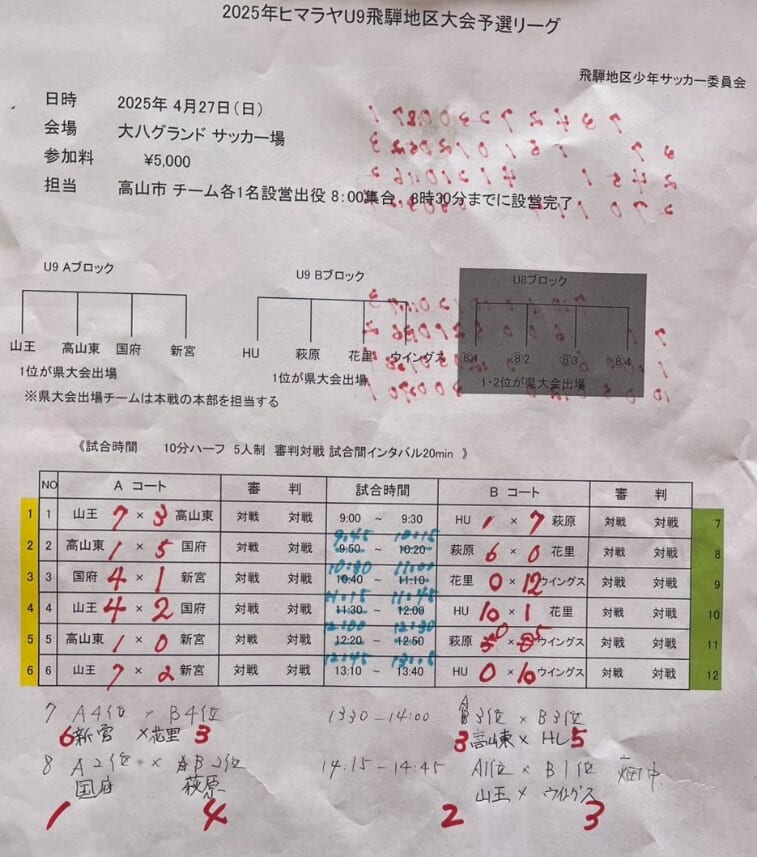 2025年ヒマラヤU9飛騨地区大会予選リーグ
飛騨地区少年サッカー委員会
日時 2025年 4月27日(日)
会場 大八グランド サッカー場
参加料 ¥5,000
担当 高山市 チーム各1名設営出役 8:00集合 8時30分までに設営完了
U9 Aブロック U9 Bブロック U8ブロック
山王 高山東 国府 新宮 HU 萩原 花里 ウイングス ⑧1 ⑧2 ⑧3 ⑧4
1位が県大会出場 1位が県大会出場 1・2位が県大会出場
※県大会出場チームは本戦の本部を担当する
《試合時間 10分ハーフ 5人制 審判対戦 試合間インタバル20min 》
NO A コート 審 判 試合時間 B コート 審 判
1 1 山王 7 × 3 高山東 対戦 対戦 9:00 ~ 9:30 HU 1 × 7 萩原 対戦 対戦 7
9:45 10:15
2 2 高山東 1 × 5 国府 対戦 対戦 9:50 ~ 10:20 萩原 6 × 0 花里 対戦 対戦 8
10:30 11:00
3 3 国府 4 × 1 新宮 対戦 対戦 10:40 ~ 11:10 花里 0 × 12 ウイングス 対戦 対戦 9
11:15 11:45
4 4 山王 4 × 2 国府 対戦 対戦 11:30 ~ 12:00 HU 10 × 1 花里 対戦 対戦 10
12:00 12:30
5 5 高山東 1 × 0 新宮 対戦 対戦 12:20 ~ 12:50 萩原 0 × 5 ウイングス 対戦 対戦 11
12:45
6 6 山王 7 × 2 新宮 対戦 対戦 13:10 ~ 13:40 HU 0 × 10 ウイングス 対戦 対戦 12
7 A4位 × B4位 1330-14:00 A3位 × B3位
6 新宮 × 花里 3 3 高山東 × HU 5
8 A2位 × B2位 14:15-14:45 A1位 × B1位
国府 萩原 山王 × ウイングス
1 4 2 3